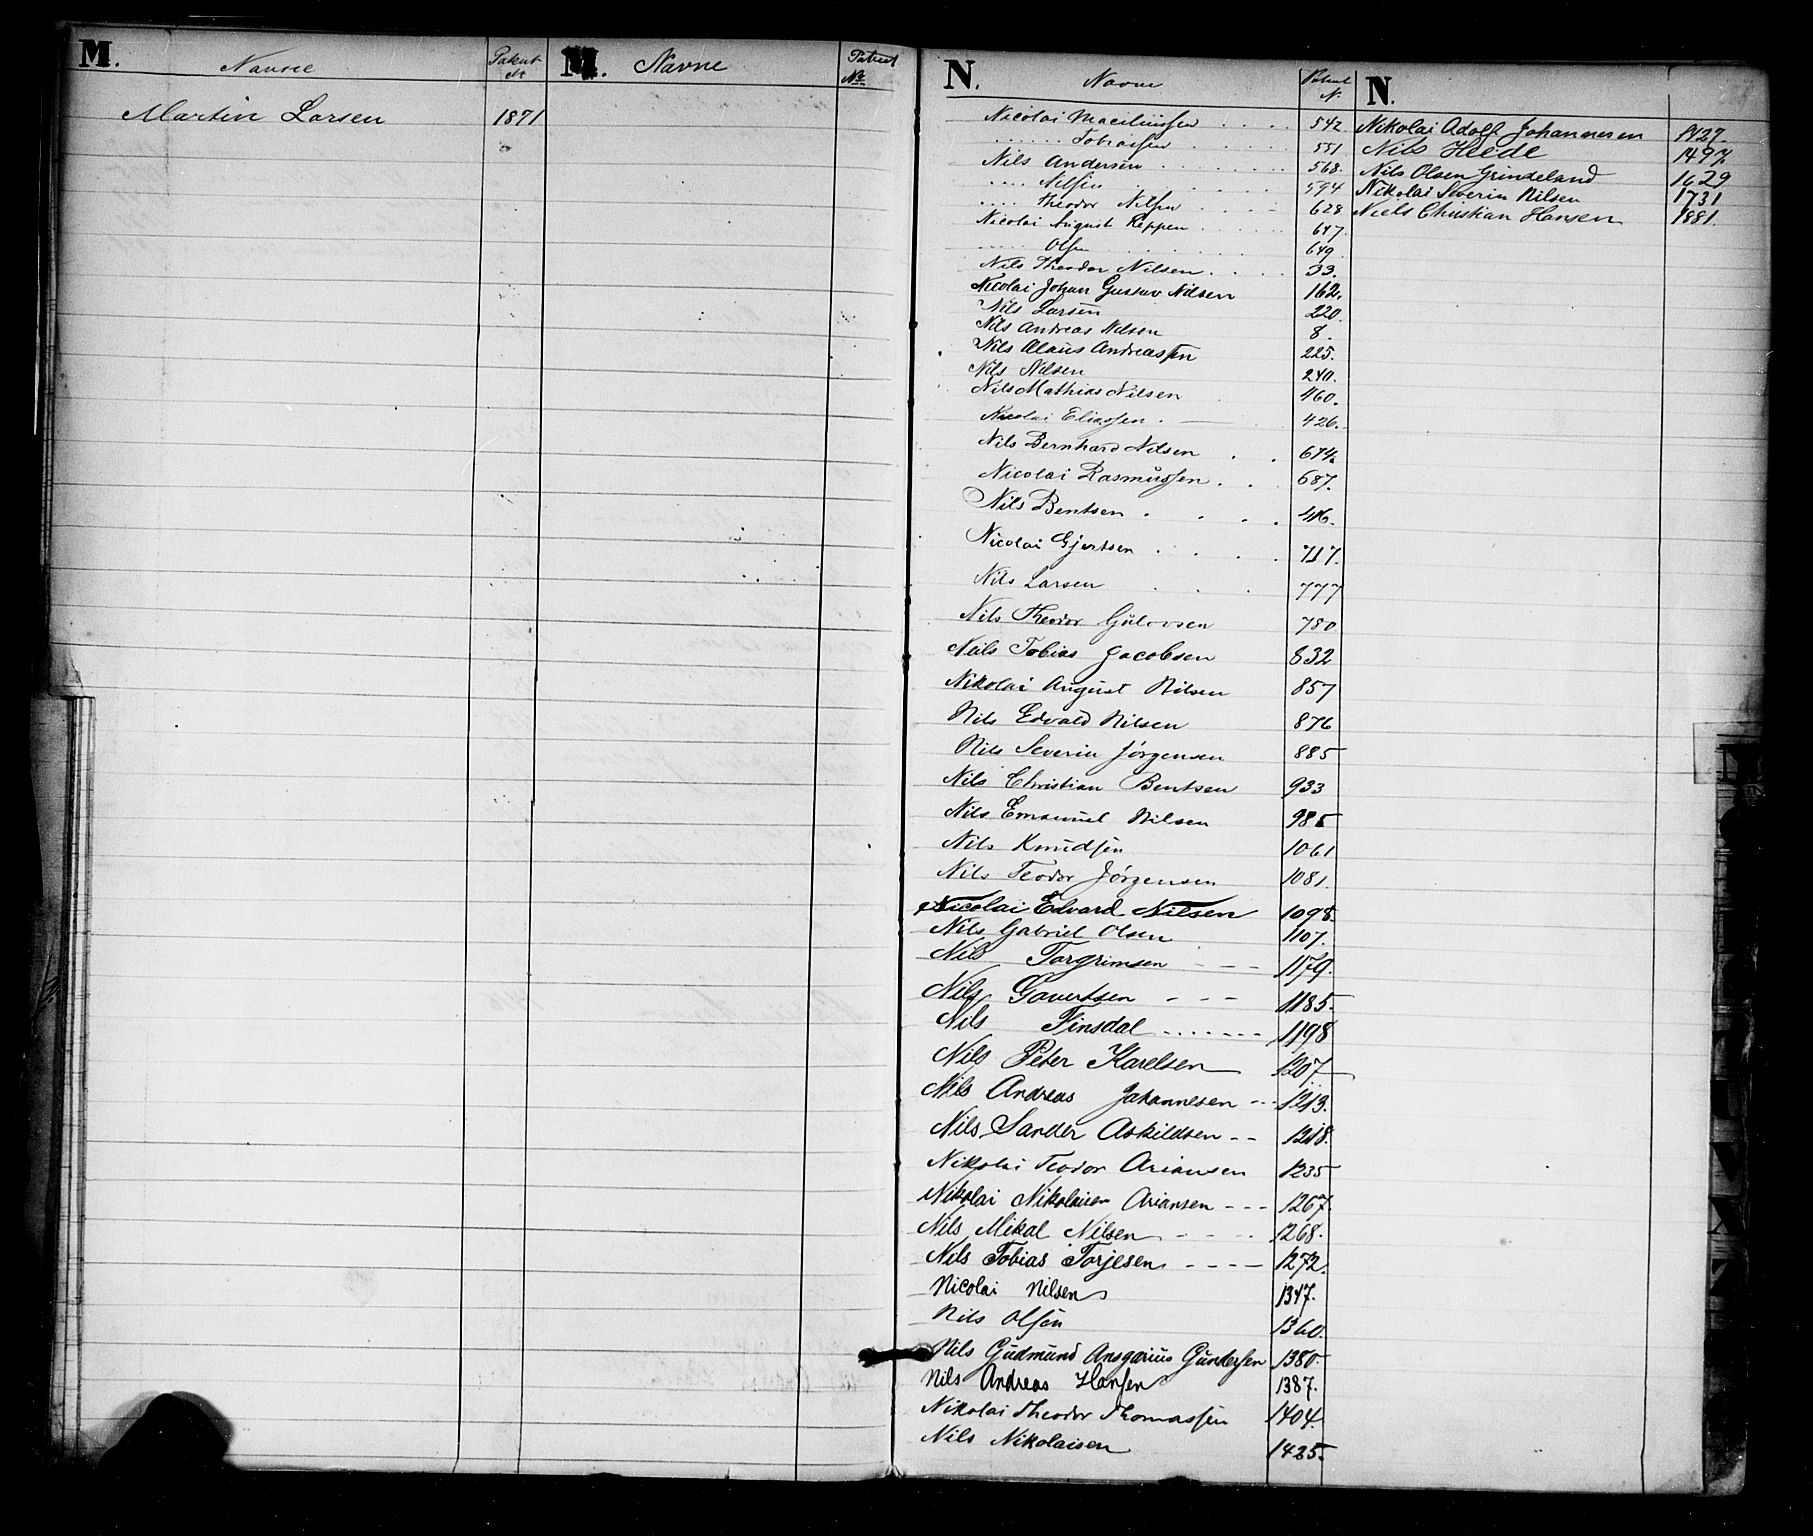 M. Navne Patent Nr
Martin Larsen 1871
M. Navne Patent No
N. Navne Patent N.
Nicolai 542
...... Tobiassen 551
Nils Andersen 568.
.... Nilsen 594
.... Theodor Nilsen 628
Nicolai August Reppen 647.
..... Olsen 649
Nils Theodor Nilsen 33.
Nicolai Johan Gustav Nilsen 162.
Nils Larsen 220.
Nils Andreas Nilsen 8.
Nils Olaus Andreassen 225.
Nils Nilsen 240.
Nils Mathias Nilsen 460.
Nicolai Eliassen 426.
Nils Bernhard Nilsen 674.
Nicolai Rasmussen 687.
Nils Bentsen 416.
Nicolai Gjertsen 717.
Nils Larsen 777
Nils Theodor Gulovsen 780
Neils Tobias Jacobsen 832
Nikolai August Nilsen 857
Nils Edvald Nilsen 876
Nils Severin Jörgensen 885
Nils Christian Bentsen 933
Nils Emanuel Nilsen 985
Nils Knudsen 1061
Nils Teodor Jörgensen 1081.
Nicolai Edvard Nilsen 1098.
Nils Gabriel Olsen 1107.
Nils Torgrimsen - - - 1179.
Nils Govertsen - - - 1185.
Nils Finsdal ....... 1198
Nils Peter Karelsen 1207
Nils Andreas Johannesen --- 1213.
Nils Sander Askildsen -- 1218.
Nikolai Teodor Ariansen 1235
Nikolai Nikolaisen Ariansen --- 1267.
Nils Mikal Nilsen - - - - 1268.
Nils Tobias Torjesen - - - - 1272.
Nicolai Nilsen 1347.
Nils Olsen 1360.
Nils Gudmund Ansgarius Gundersen 1380.
Nils Andreas Hansen 1387.
Nikolai Theodor Thomassen 1404.
Nils Nikolaisen 1425.
N.
Nikolai Adolf Johannesen 1427.
Nils Heede 1497.
Nils Olsen Grindeland 1629
Nikolai Severin Nilsen 1731
Niels Christian Hansen 1881.